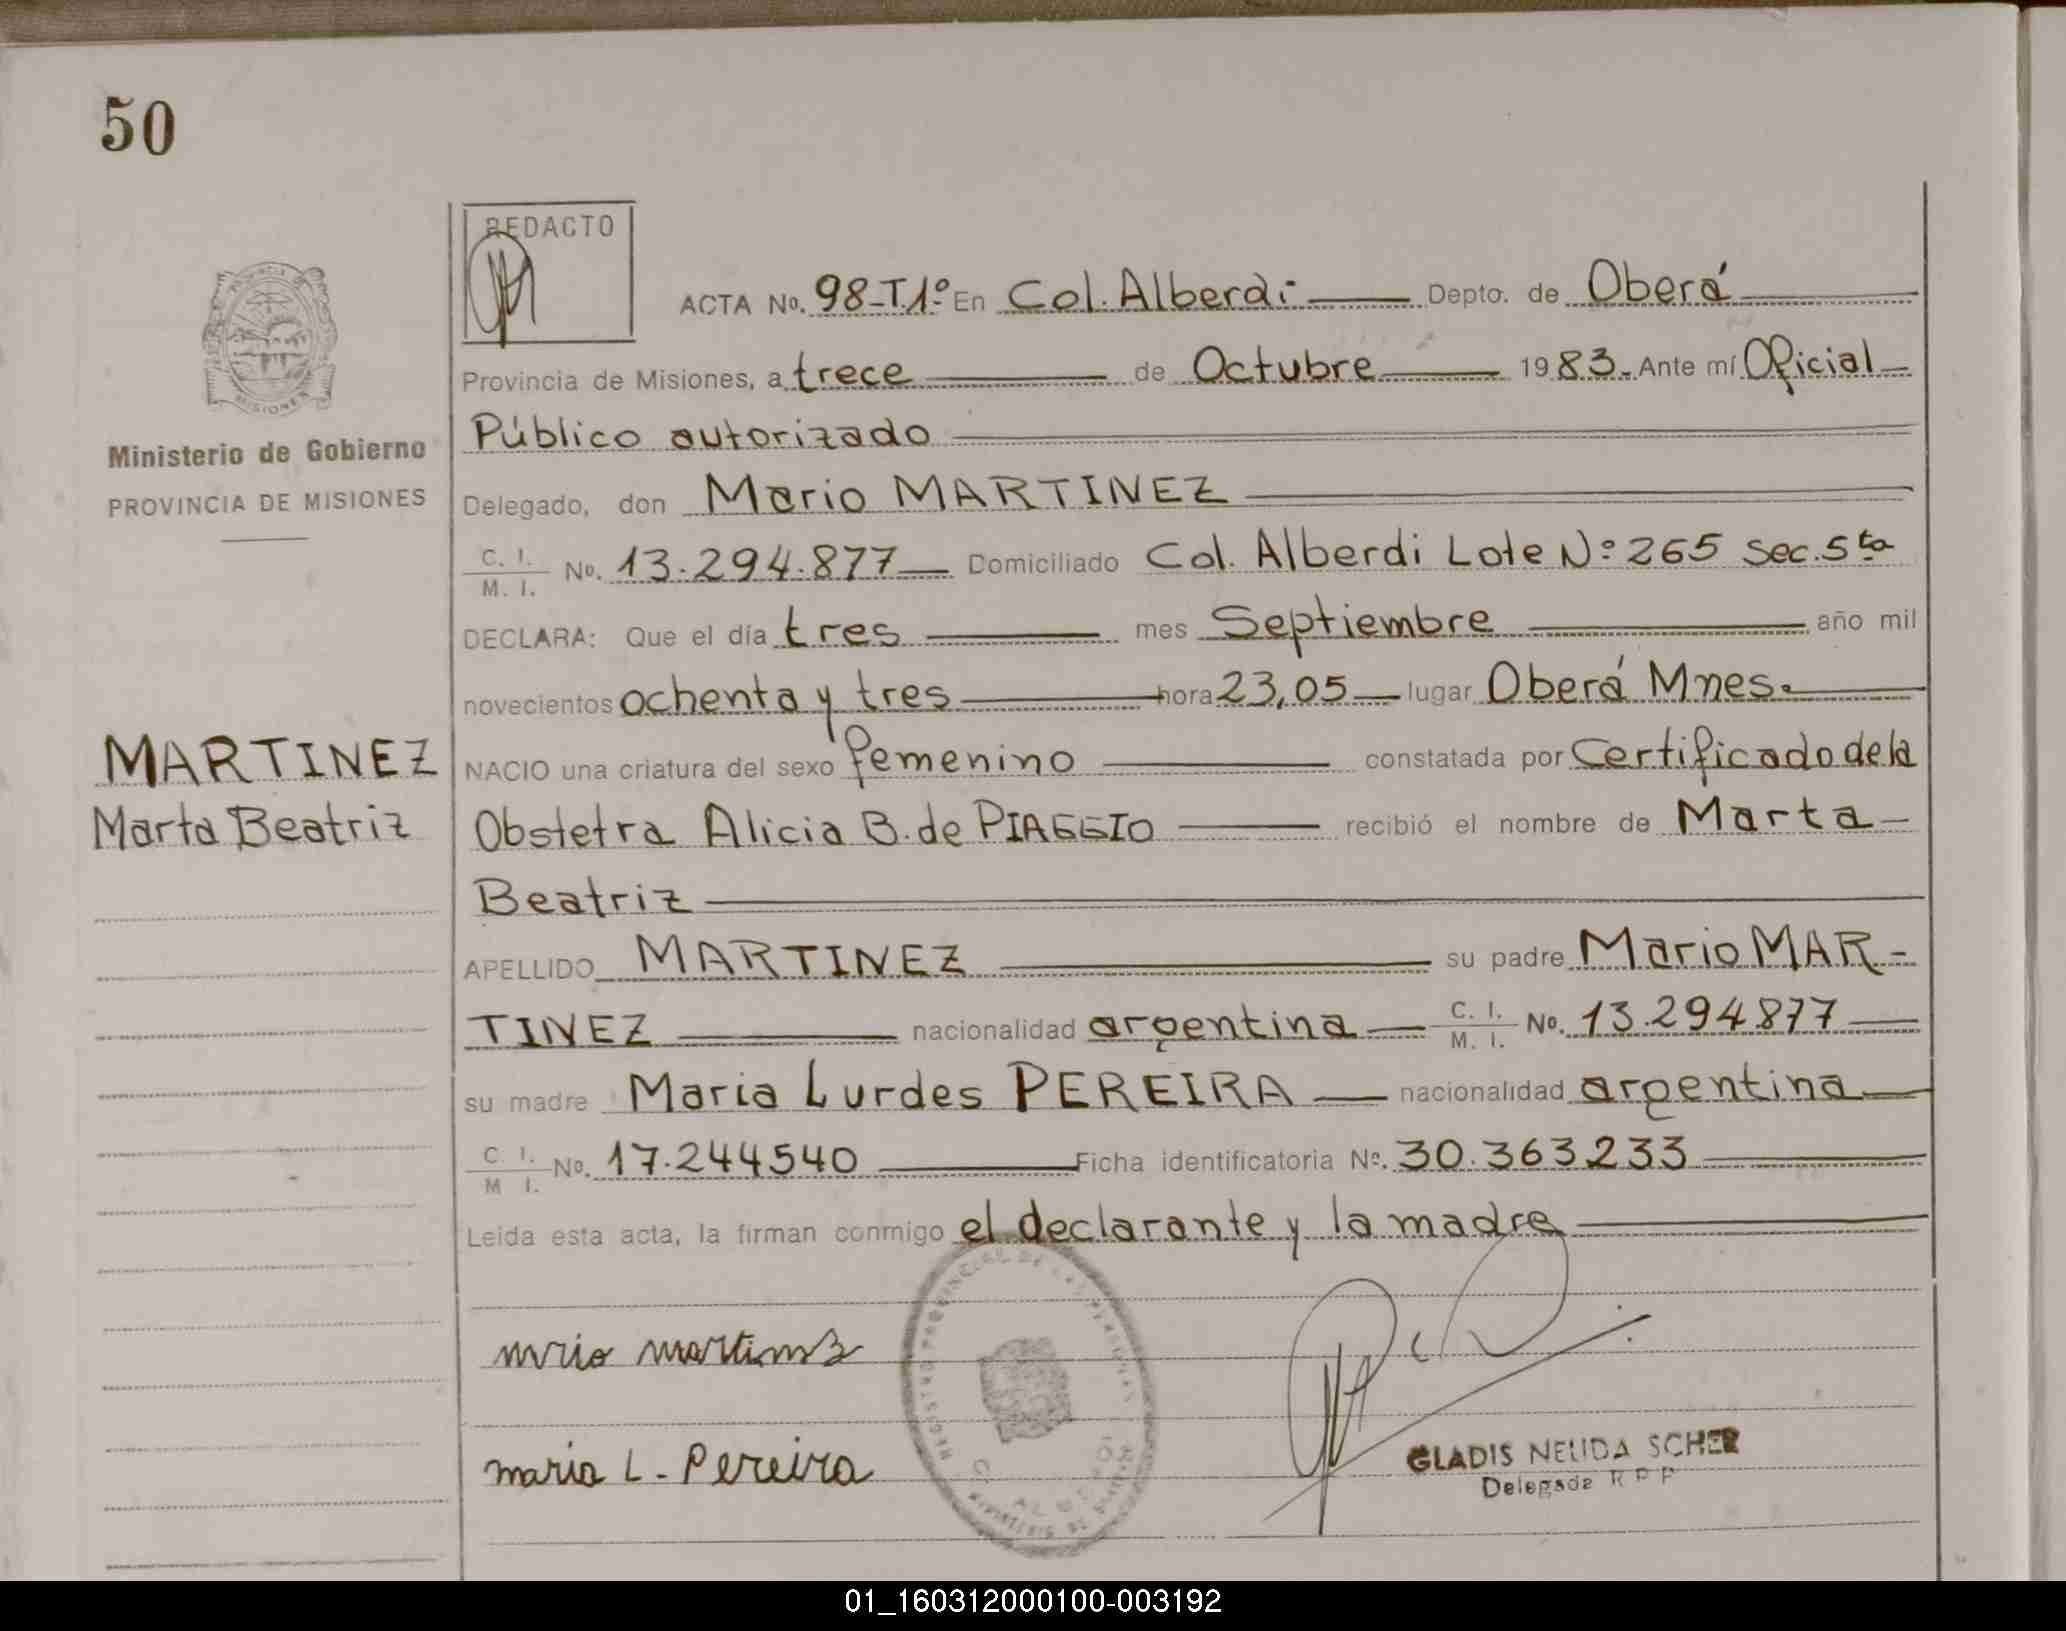 50
REDACTO
ACTA No. 98-T.1º En Col. Alberdi Depto. de Oberá
Provincia de Misiones, a trece de Octubre 1983. Ante mí Oficial
Público autorizado
Ministerio de Gobierno
PROVINCIA DE MISIONES
Delegado, don Mario MARTINEZ
C. I. / M. I. No. 13.294.877 Domiciliado Col. Alberdi Lote Nº 265 Sec. 5ta
DECLARA: Que el día tres mes Septiembre año mil
novecientos ochenta y tres hora 23,05 lugar Oberá Mnes.
MARTINEZ
Marta Beatriz
NACIO una criatura del sexo femenino constatada por Certificado de la
Obstetra Alicia B. de PIAGGIO recibió el nombre de Marta
Beatriz
APELLIDO MARTINEZ su padre Mario MAR-
TINEZ nacionalidad argentina C. I. / M. I. No. 13.294.877
su madre Maria Lurdes PEREIRA nacionalidad argentina
C. I. / M. I. No. 17.244540 Ficha identificatoria Nº. 30.363233
Leida esta acta, la firman conmigo el declarante y la madre
maria L. Pereira
REGISTRO PROVINCIAL DE LAS PERSONAS
GLADIS NELIDA SCHER
Delegada R P P
01_160312000100-003192